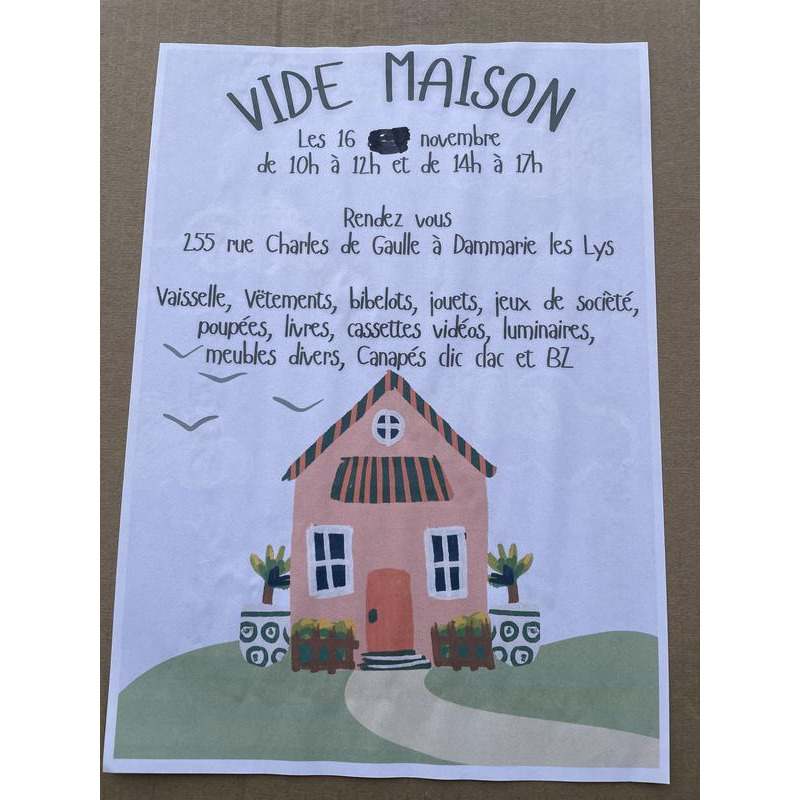 VIDE MAISON
Les 16 novembre
de 10h à 12h et de 14h à 17h
Rendez vous
255 rue Charles de Gaulle à Dammarie les Lys
Vaisselle, Vëtements, bibelots, jouets, jeux de sociètè,
poupées, livres, cassettes vidéos, luminaires,
meubles divers, Canapés clic clac et BZ